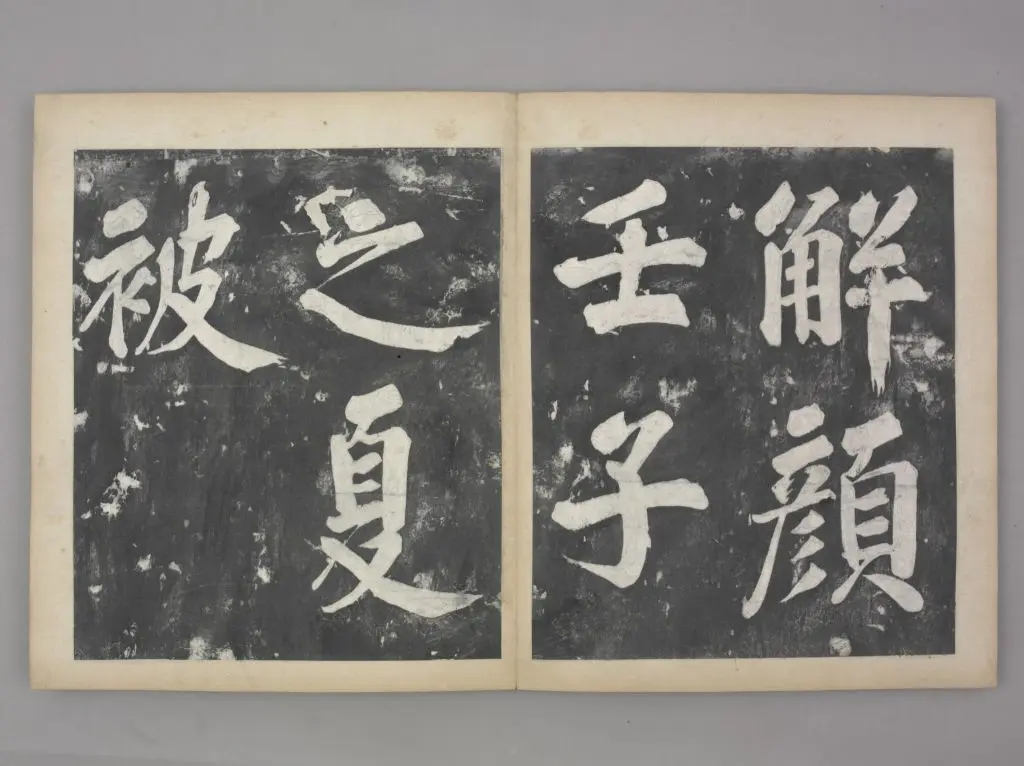 解顏
壬子
之夏
被